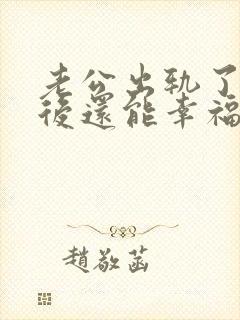 老公出軌了
後還能幸福
趙敬菡